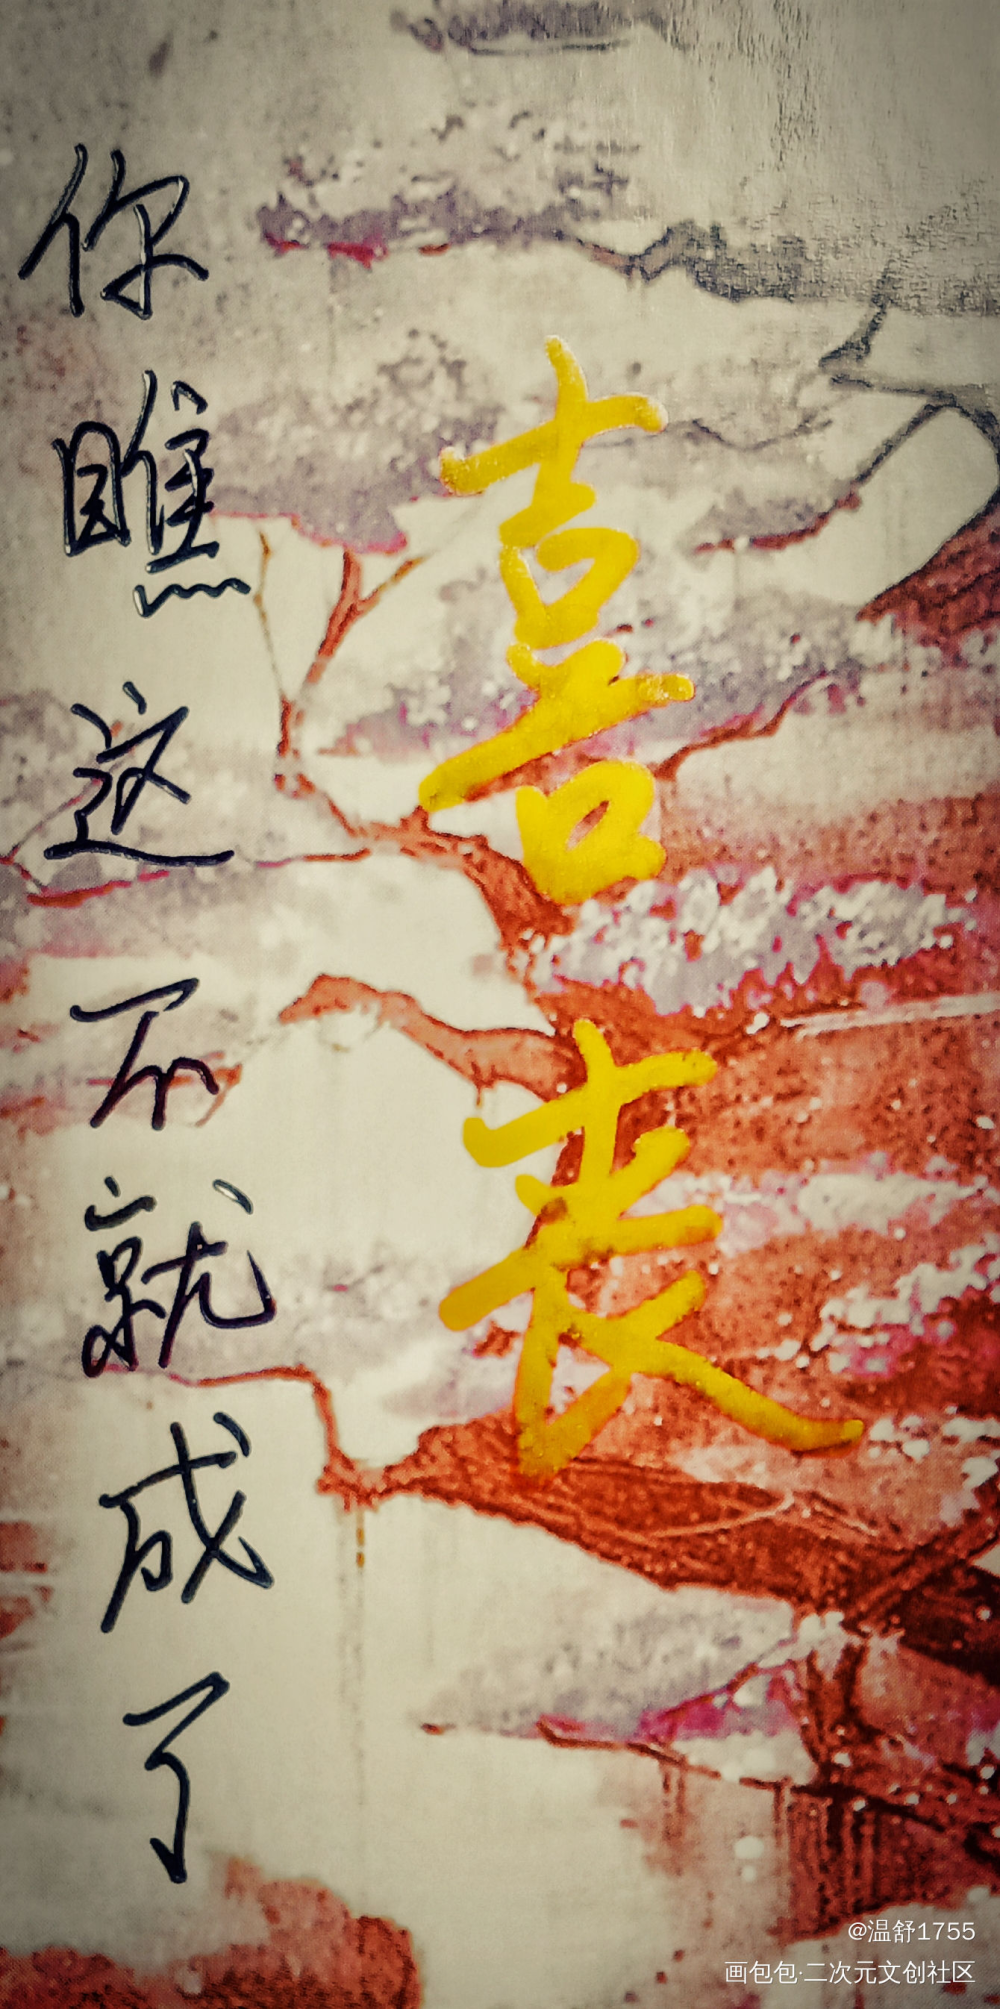 喜丧
你瞧这不就成了
@温舒1755
画包包·二次元文创社区